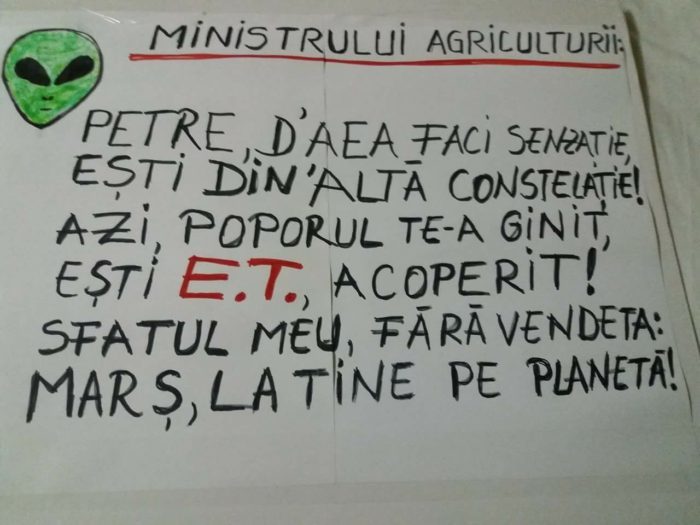 MINISTRULUI AGRICULTURII:
PETRE, D'AEA FACI SENZAȚIE,
EȘTI DIN'ALTĂ CONSTELAȚIE!
AZI, POPORUL TE-A GINIT,
EȘTI E.T., ACOPERIT!
SFATUL MEU, FĂRĂ VENDETA:
MARȘ, LA TINE PE PLANETĂ!